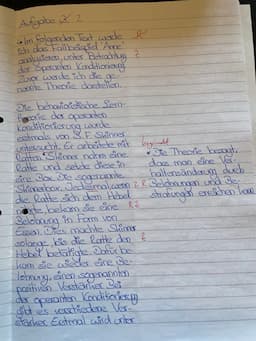 Aufgabe 2
• Im folgenden Text werde
ich das Fallbeispiel Anne
analysieren unter Betrachtung
der operanten Konditionierung
Zuvor werde ich die ge-
nannte Theorie darstellen.
Die behavioristische Lern-
theorie der operanten
Konditionierung wurde
erstmals von B.F. Skinner
untersucht. Er arbeitete mit
Ratten. Skinner nahm eine
Ratte und setzte diese in
eine Box. Die sogenannte
Skinnerbox. Jedesmal wenn
die Ratte sich dem Hebel
bekam sie eine
Belohnung in Form von
Essen. Dies machte Skinner
solange, bis die Ratte den
Hebel betätigte. Dafür be-
kam sie wieder eine Be-
lohnung, einen sogenannten
positiven Verstärker. Bei
der operanten Konditionierung
gibt es verschiedene Ver-
stärker. Erstmal wird unter
• Die Theorie besagt,
dass man eine Ver-
haltensänderung durch
Belohnungen und Be-
strafungen erreichen kann